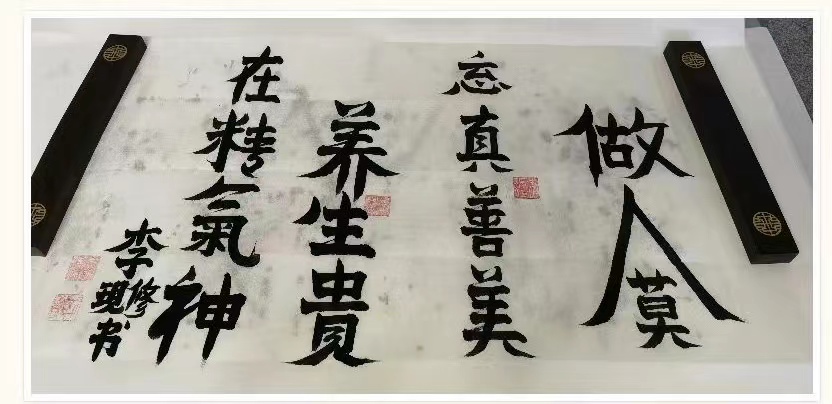 做人莫
忘真善美
养生貴
在精氣神
李修現书